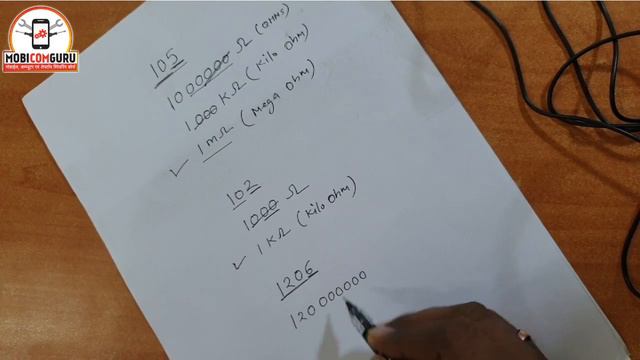 MOBICOMGURU
105
1000000 Ω (OHMS)
1000 KΩ (Kilo Ohm)
✓ 1 mΩ (Mega Ohm)
102
1000 Ω
✓ 1 KΩ (Kilo Ohm)
1206
120000000